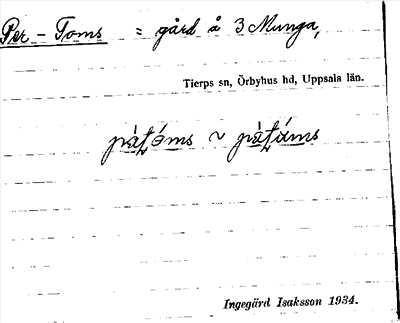 Per-Toms = gård å 3 Munga,
Tierps sn, Örbyhus hd, Uppsala län.
pàt̨óms ~ pàt̨áms
Ingegärd Isaksson 1934.